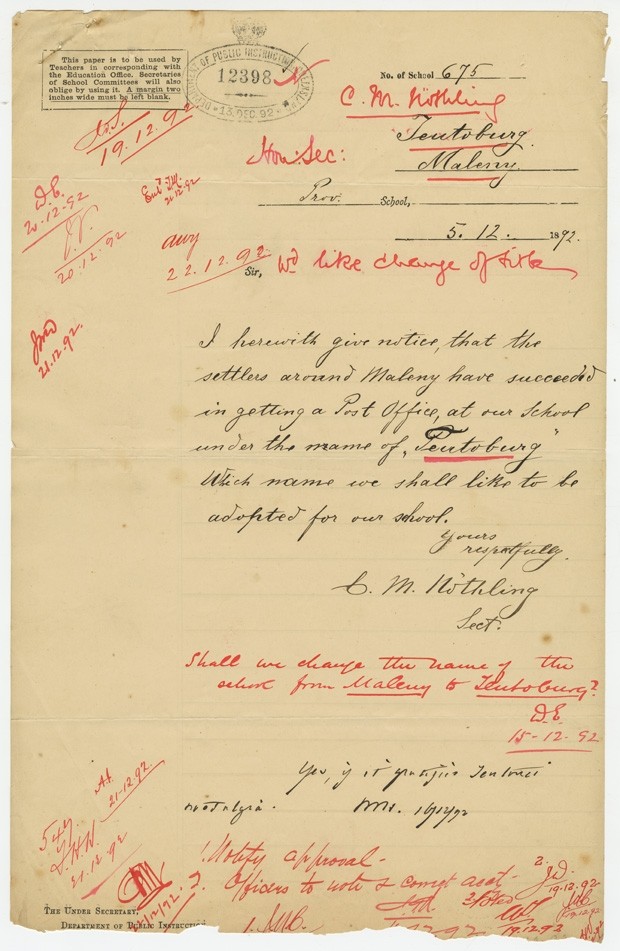 This paper is to be used by
Teachers in corresponding with
the Education Office. Secretaries
of School Committees will also
oblige by using it. A margin two
inches wide must be left blank.
DEPARTMENT OF PUBLIC INSTRUCTION
12398
13. DEC. 92
No. of School 675
C. M. Nöthling
Teutoburg
Maleny
Hon: Sec:
Prov. School,
5. 12. 1892.
19.12.92
D.E.
20.12.92
20.12.92
21.12.92
22.12.92
21.12.92.
Sir,
Wd like change of title
I herewith give notice, that the
settlers around Maleny have succeeded
in getting a Post Office, at our School
under the name of „Teutoburg"
Which name we shall like to be
adopted for our school.
Yours
respectfully.
C. M. Nöthling
Sect.
Shall we change the name of the
school from Maleny to Teutoburg?
D.E.
15-12-92
Yes, if it gratifies Teutonic
nostalgia.
21-12-92.
547
21.12.92
1. Notify approval -
2. Officers to note &
19.12.92
19.12.92
THE UNDER SECRETARY,
DEPARTMENT OF PUBLIC INSTRUCTION